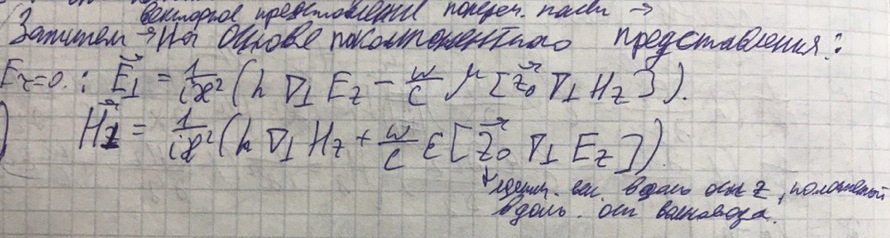 векторное представление попереч. поля →
Запишем → На основе покомпонентного представления:
E_z=0. : E⃗_⊥ = 1/(iæ²) (h ∇_⊥ E_z − ω/c μ [z⃗_0 ∇_⊥ H_z]).
H⃗_⊥ = 1/(iæ²) (h ∇_⊥ H_z + ω/c ε [z⃗_0 ∇_⊥ E_z]).
единич. век. вдоль оси z, положенный
вдоль. оси волновода.